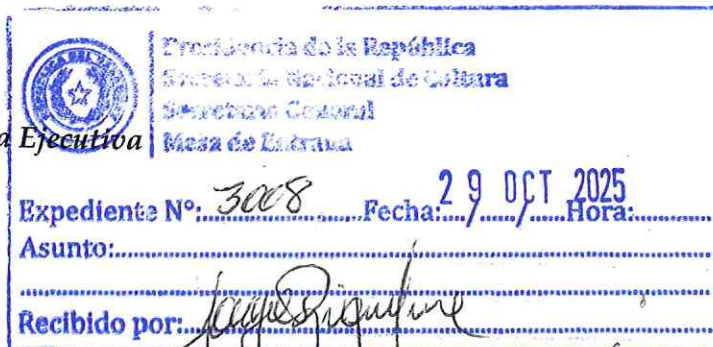 Presidencia de la República
Secretaría Nacional de Cultura
Secretaría General
a Ejecutiva Mesa de Entrada
Expediente N°: 3008 Fecha: 29 OCT 2025 Hora:
Asunto:
Recibido por: